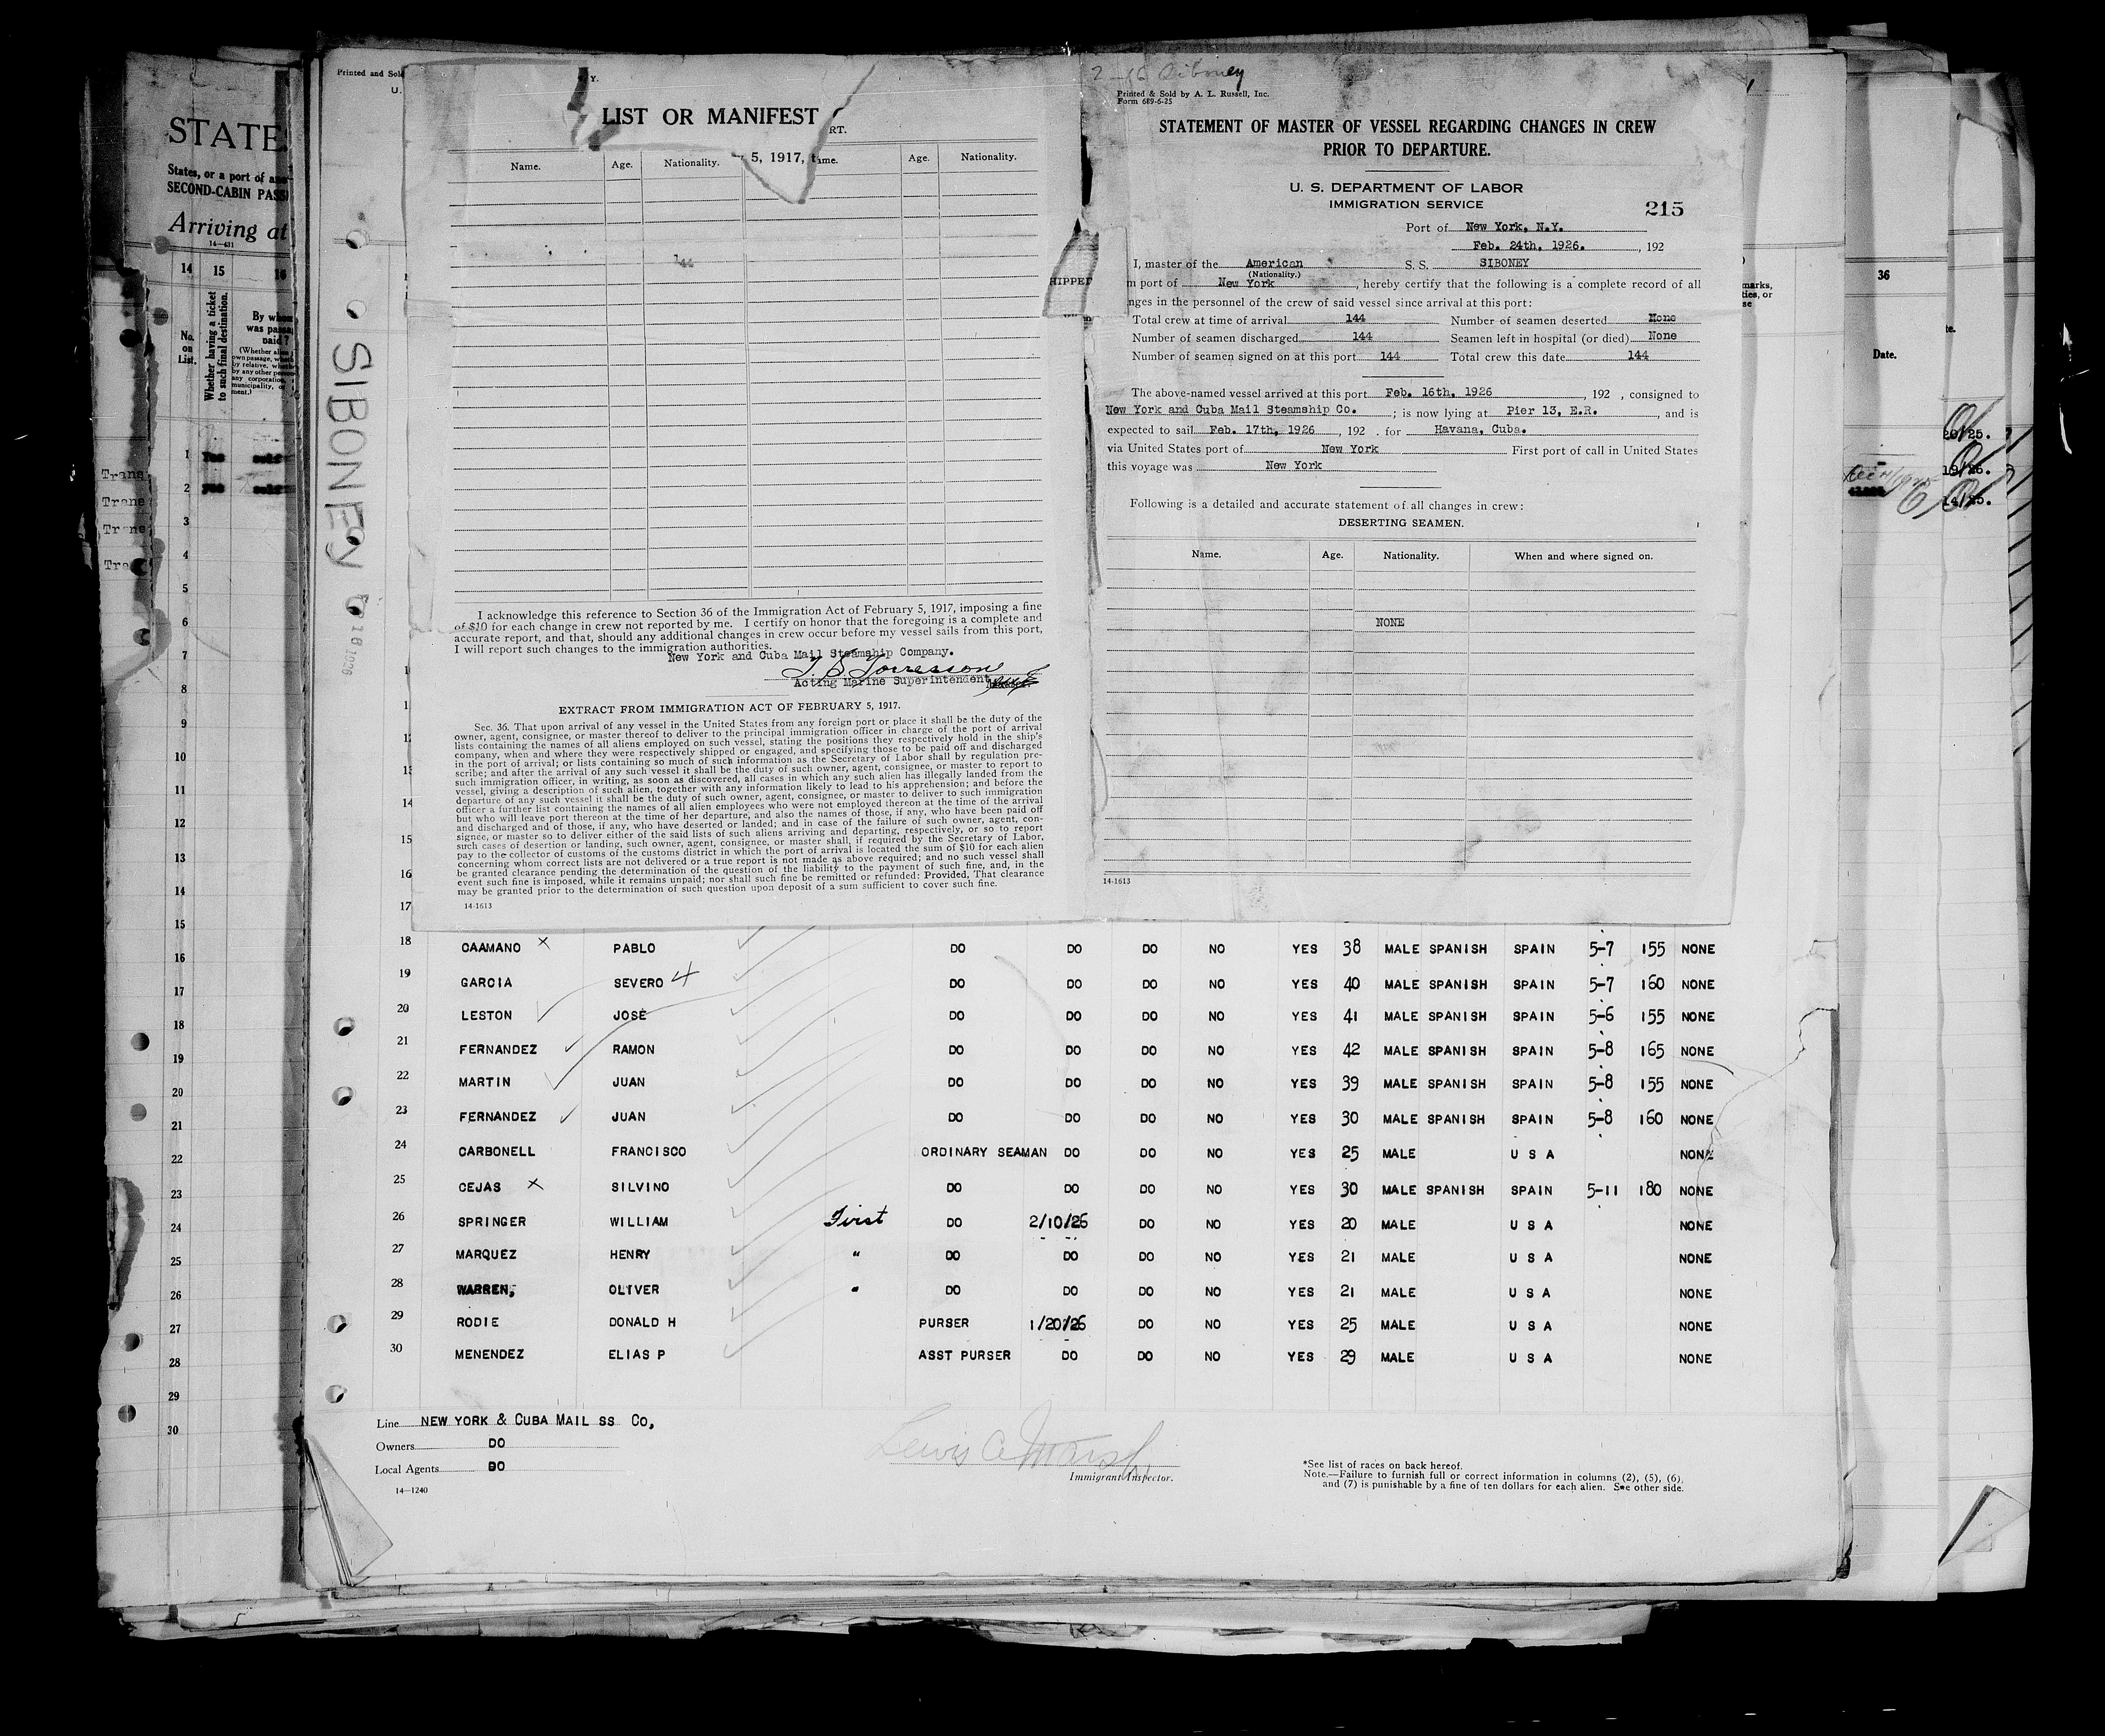 STATE
States, or a port of
SECOND-CABIN PASS
Arriving at
14—431
14 15 16
No. on List.
Whether having a ticket to such final destination.
By whom was passage paid?
Trans
Trans
Trans
1 Yes self
2 yes self
3
4
5
6
7
8
9
10
11
12
13
14
15
16
17
18
19
20
21
22
23
24
25
26
27
28
29
30
SIBONEY
Printed and Sold
U.
Y.
LIST OR MANIFEST
RT.
5, 1917,
Name. Age. Nationality. Age. Nationality.
144
I acknowledge this reference to Section 36 of the Immigration Act of February 5, 1917, imposing a fine
of $10 for each change in crew not reported by me. I certify on honor that the foregoing is a complete and
accurate report, and that, should any additional changes in crew occur before my vessel sails from this port,
I will report such changes to the immigration authorities.
New York and Cuba Mail Steamship Company.
Acting Marine Superintendent
EXTRACT FROM IMMIGRATION ACT OF FEBRUARY 5, 1917.
Sec. 36. That upon arrival of any vessel in the United States from any foreign port or place it shall be the duty of the
owner, agent, consignee, or master thereof to deliver to the principal immigration officer in charge of the port of arrival
lists containing the names of all aliens employed on such vessel, stating the positions they respectively hold in the ship's
company, when and where they were respectively shipped or engaged, and specifying those to be paid off and discharged
in the port of arrival; or lists containing so much of such information as the Secretary of Labor shall by regulation pre-
scribe; and after the arrival of any such vessel it shall be the duty of such owner, agent, consignee, or master to report to
such immigration officer, in writing, as soon as discovered, all cases in which any such alien has illegally landed from the
vessel, giving a description of such alien, together with any information likely to lead to his apprehension; and before the
departure of any such vessel it shall be the duty of such owner, agent, consignee, or master to deliver to such immigration
officer a further list containing the names of all alien employees who were not employed thereon at the time of the arrival
but who will leave port thereon at the time of her departure, and also the names of those, if any, who have been paid off
and discharged and of those, if any, who have deserted or landed; and in case of the failure of such owner, agent, con-
signee, or master so to deliver either of the said lists of such aliens arriving and departing, respectively, or so to report
such cases of desertion or landing, such owner, agent, consignee, or master shall, if required by the Secretary of Labor,
pay to the collector of customs of the customs district in which the port of arrival is located the sum of $10 for each alien
concerning whom correct lists are not delivered or a true report is not made as above required; and no such vessel shall
be granted clearance pending the determination of the question of the liability to the payment of such fine, and, in the
event such fine is imposed, while it remains unpaid; nor shall such fine be remitted or refunded: Provided, That clearance
may be granted prior to the determination of such question upon deposit of a sum sufficient to cover such fine.
14-1613
2-16 Siboney
Printed & Sold by A. L. Russell, Inc.
Form 689-6-25
STATEMENT OF MASTER OF VESSEL REGARDING CHANGES IN CREW
PRIOR TO DEPARTURE.
U. S. DEPARTMENT OF LABOR
IMMIGRATION SERVICE
215
Port of New York, N.Y.
Feb. 24th, 1926. , 192
I, master of the American S. S. SIBONEY
(Nationality.)
HIPPED
m port of New York , hereby certify that the following is a complete record of all
nges in the personnel of the crew of said vessel since arrival at this port:
Total crew at time of arrival 144 Number of seamen deserted None
Number of seamen discharged 144 Seamen left in hospital (or died) None
Number of seamen signed on at this port 144 Total crew this date 144
The above-named vessel arrived at this port Feb. 16th, 1926 , 192 , consigned to
New York and Cuba Mail Steamship Co. ; is now lying at Pier 13, E.R. , and is
expected to sail Feb. 17th, 1926 , 192 . for Havana, Cuba.
via United States port of New York First port of call in United States
this voyage was New York
Following is a detailed and accurate statement of all changes in crew:
DESERTING SEAMEN.
Name. Age. Nationality. When and where signed on.
NONE
14-1613
36
Date.
14
15
16
17
18 CAAMANO X PABLO DO DO DO NO YES 38 MALE SPANISH SPAIN 5-7 155 NONE
19 GARCIA SEVERO DO DO DO NO YES 40 MALE SPANISH SPAIN 5-7 160 NONE
20 LESTON JOSE DO DO DO NO YES 41 MALE SPANISH SPAIN 5-6 155 NONE
21 FERNANDEZ RAMON DO DO DO NO YES 42 MALE SPANISH SPAIN 5-8 165 NONE
22 MARTIN JUAN DO DO DO NO YES 39 MALE SPANISH SPAIN 5-8 155 NONE
23 FERNANDEZ JUAN DO DO DO NO YES 30 MALE SPANISH SPAIN 5-8 160 NONE
24 CARBONELL FRANCISCO ORDINARY SEAMAN DO DO NO YES 25 MALE U S A NONE
25 CEJAS X SILVINO DO DO DO NO YES 30 MALE SPANISH SPAIN 5-11 180 NONE
26 SPRINGER WILLIAM First DO 2/10/26 DO NO YES 20 MALE U S A NONE
27 MARQUEZ HENRY " DO DO DO NO YES 21 MALE U S A NONE
28 WARREN, OLIVER " DO DO DO NO YES 21 MALE U S A NONE
29 RODIE DONALD H PURSER 1/20/26 DO NO YES 25 MALE U S A NONE
30 MENENDEZ ELIAS P ASST PURSER DO DO NO YES 29 MALE U S A NONE
Line NEW YORK & CUBA MAIL SS Co,
Owners DO
Local Agents DO
14—1240
Lewis A Marsh
Immigrant Inspector.
*See list of races on back hereof.
Note.—Failure to furnish full or correct information in columns (2), (5), (6),
and (7) is punishable by a fine of ten dollars for each alien. See other side.